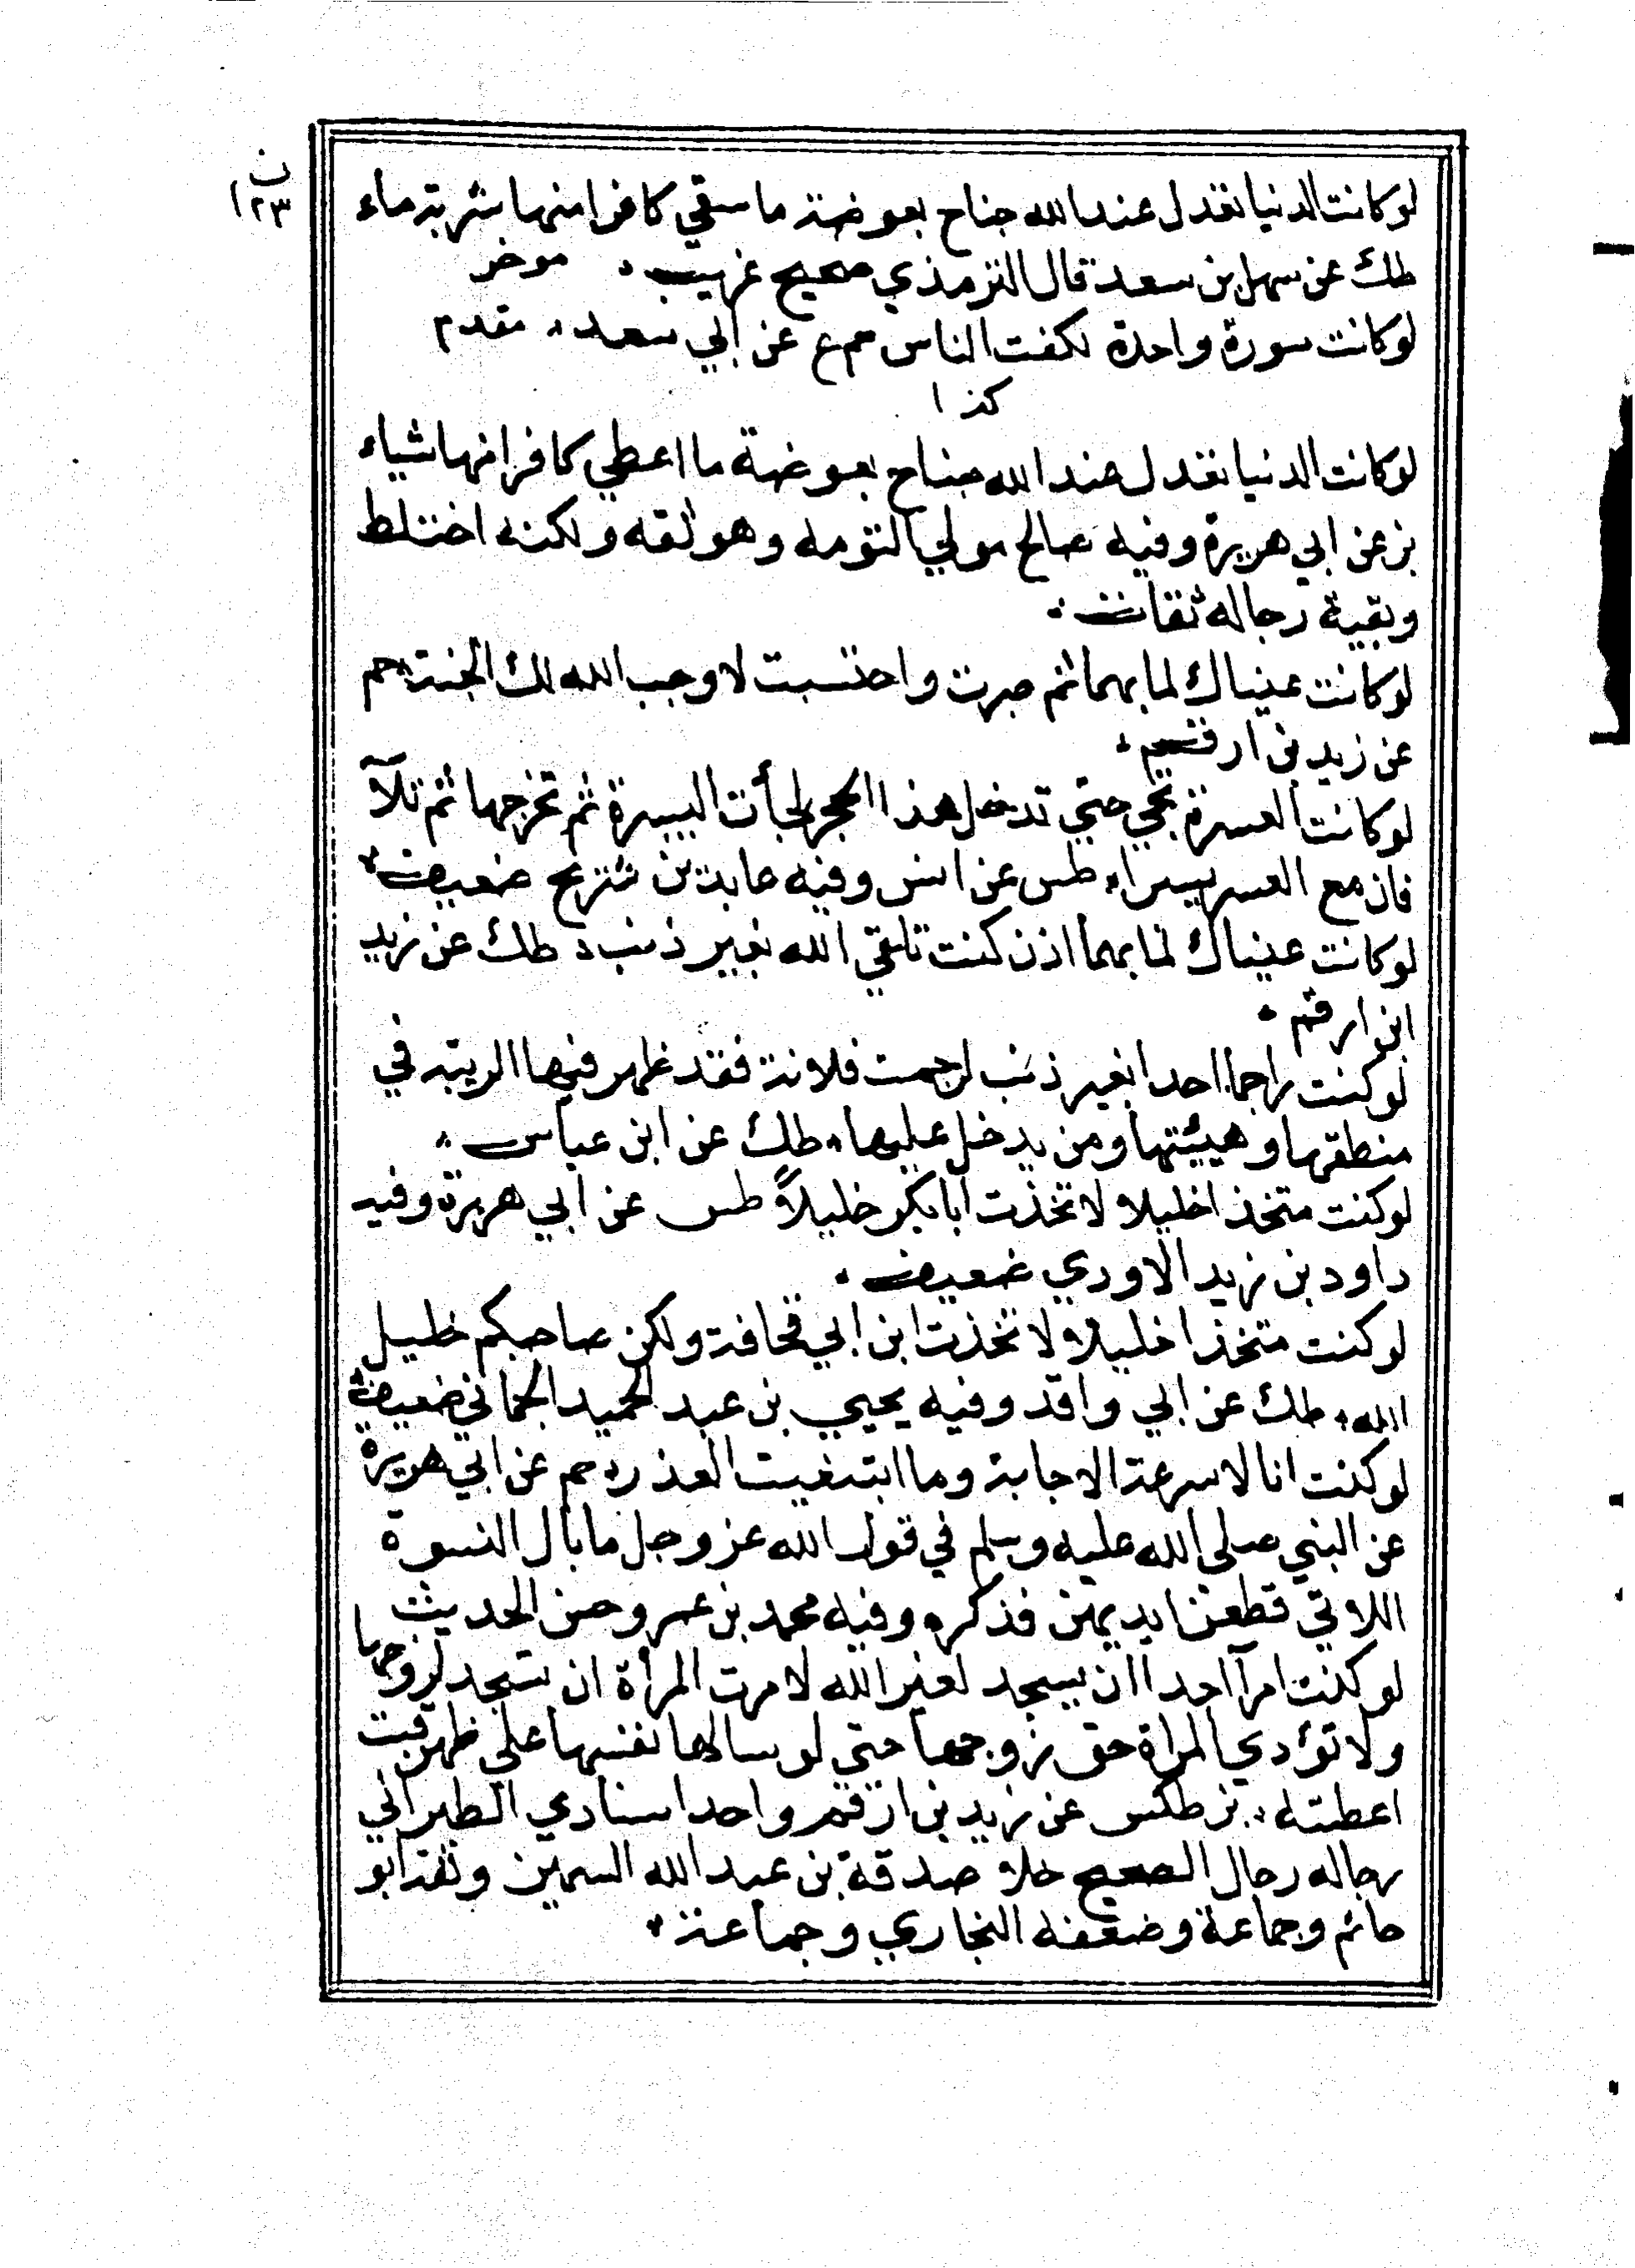 ن
١٢٣
لوكانت الدنيا تعدل عند الله جناح بعوضة ما سقي كافرا منها شربة ماء
طك عن سهل بن سعد قال الترمذي صحيح غريب ، موخر
لوكانت سورة واحدة لكفت الناس حم ع عن ابي سعد ، مقدم
كذا
لوكانت الدنيا تعدل عند الله جناح بعوضة ما اعطي كافرا منها شياء
بز عن ابي هريرة وفيه صالح مولي التومه وهو ثقه ولكنه اختلط
وبقية رجاله ثقات ،
لوكانت عيناك لما بهما ثم صبرت واحتسبت لاوجب الله لك الجنة ، حم
عن زيد بن ارقم ،
لوكانت العسرة تجي حتي تدخل هذا الحجر لجأت اليسرة ثم تخرجها ثم تلآ
فان مع العسر يسرا ، طس عن انس وفيه عايذ بن شريح ضعيف ،
لوكانت عيناك لما بهما اذن كنت تلقي الله بغير ذنب ، طك عن زيد
ابن ارقم ،
لوكنت راجما احدا بغير ذنب لرجمت فلانة فقد ظهر فيها الريبة في
منطقها وهيئتها ومن يدخل عليها ، طك عن ابن عباس ،
لوكنت متخذا خليلا لاتخذت ابابكر خليلاً طس عن ابي هريرة وفيه
داود بن زيد الاودي ضعيف ،
لوكنت متخذا خليلا لاتخذت ابن ابي قحافة ولكن صاحبكم خليل
الله ، طك عن ابي واقد وفيه يحيي بن عبد الحميد الحماني ضعيف
لوكنت انا لاسرعة الاجابة وما ابتغيت العذر ، حم عن ابي هريرة
عن النبي صلى الله عليه وسلم في قول الله عز وجل ما بال النسوة
اللاتي قطعن ايديهن فذكره وفيه محمد بن عمرو حسن الحديث
لوكنت امرآ احدا ان يسجد لغير الله لامرت المرأة ان تسجد لزوجها
ولا تؤدي المراة حق زوجها حتي لو سالها نفسها على ظهر قتب
اعطته ، بز طكس عن زيد بن ارقم واحد اسنادي الطبراني
رجاله رجال الصحيح خلا صدقة بن عبد الله السمين وثقه ابو
حاتم وجماعة وضعفه البخاري وجماعة ،